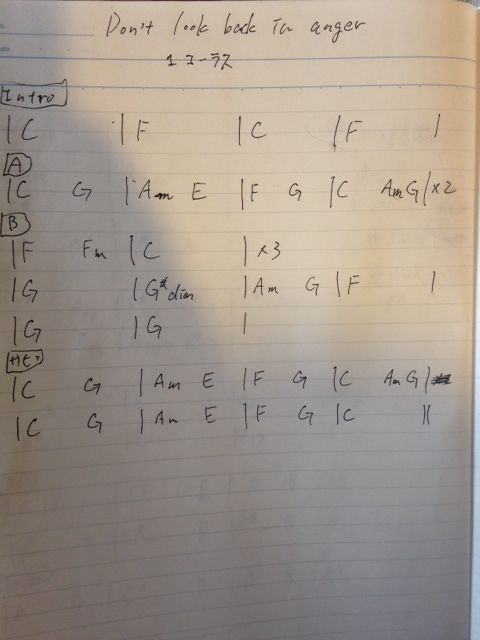 Don't look back in anger
1コーラス
Intro
| C | F | C | F |
A
| C G | Am E | F G | C Am G | ×2
B
| F Fm | C | ×3
| G | G#dim | Am G | F |
| G | G |
サビ
| C G | Am E | F G | C Am G |
| C G | Am E | F G | C ||